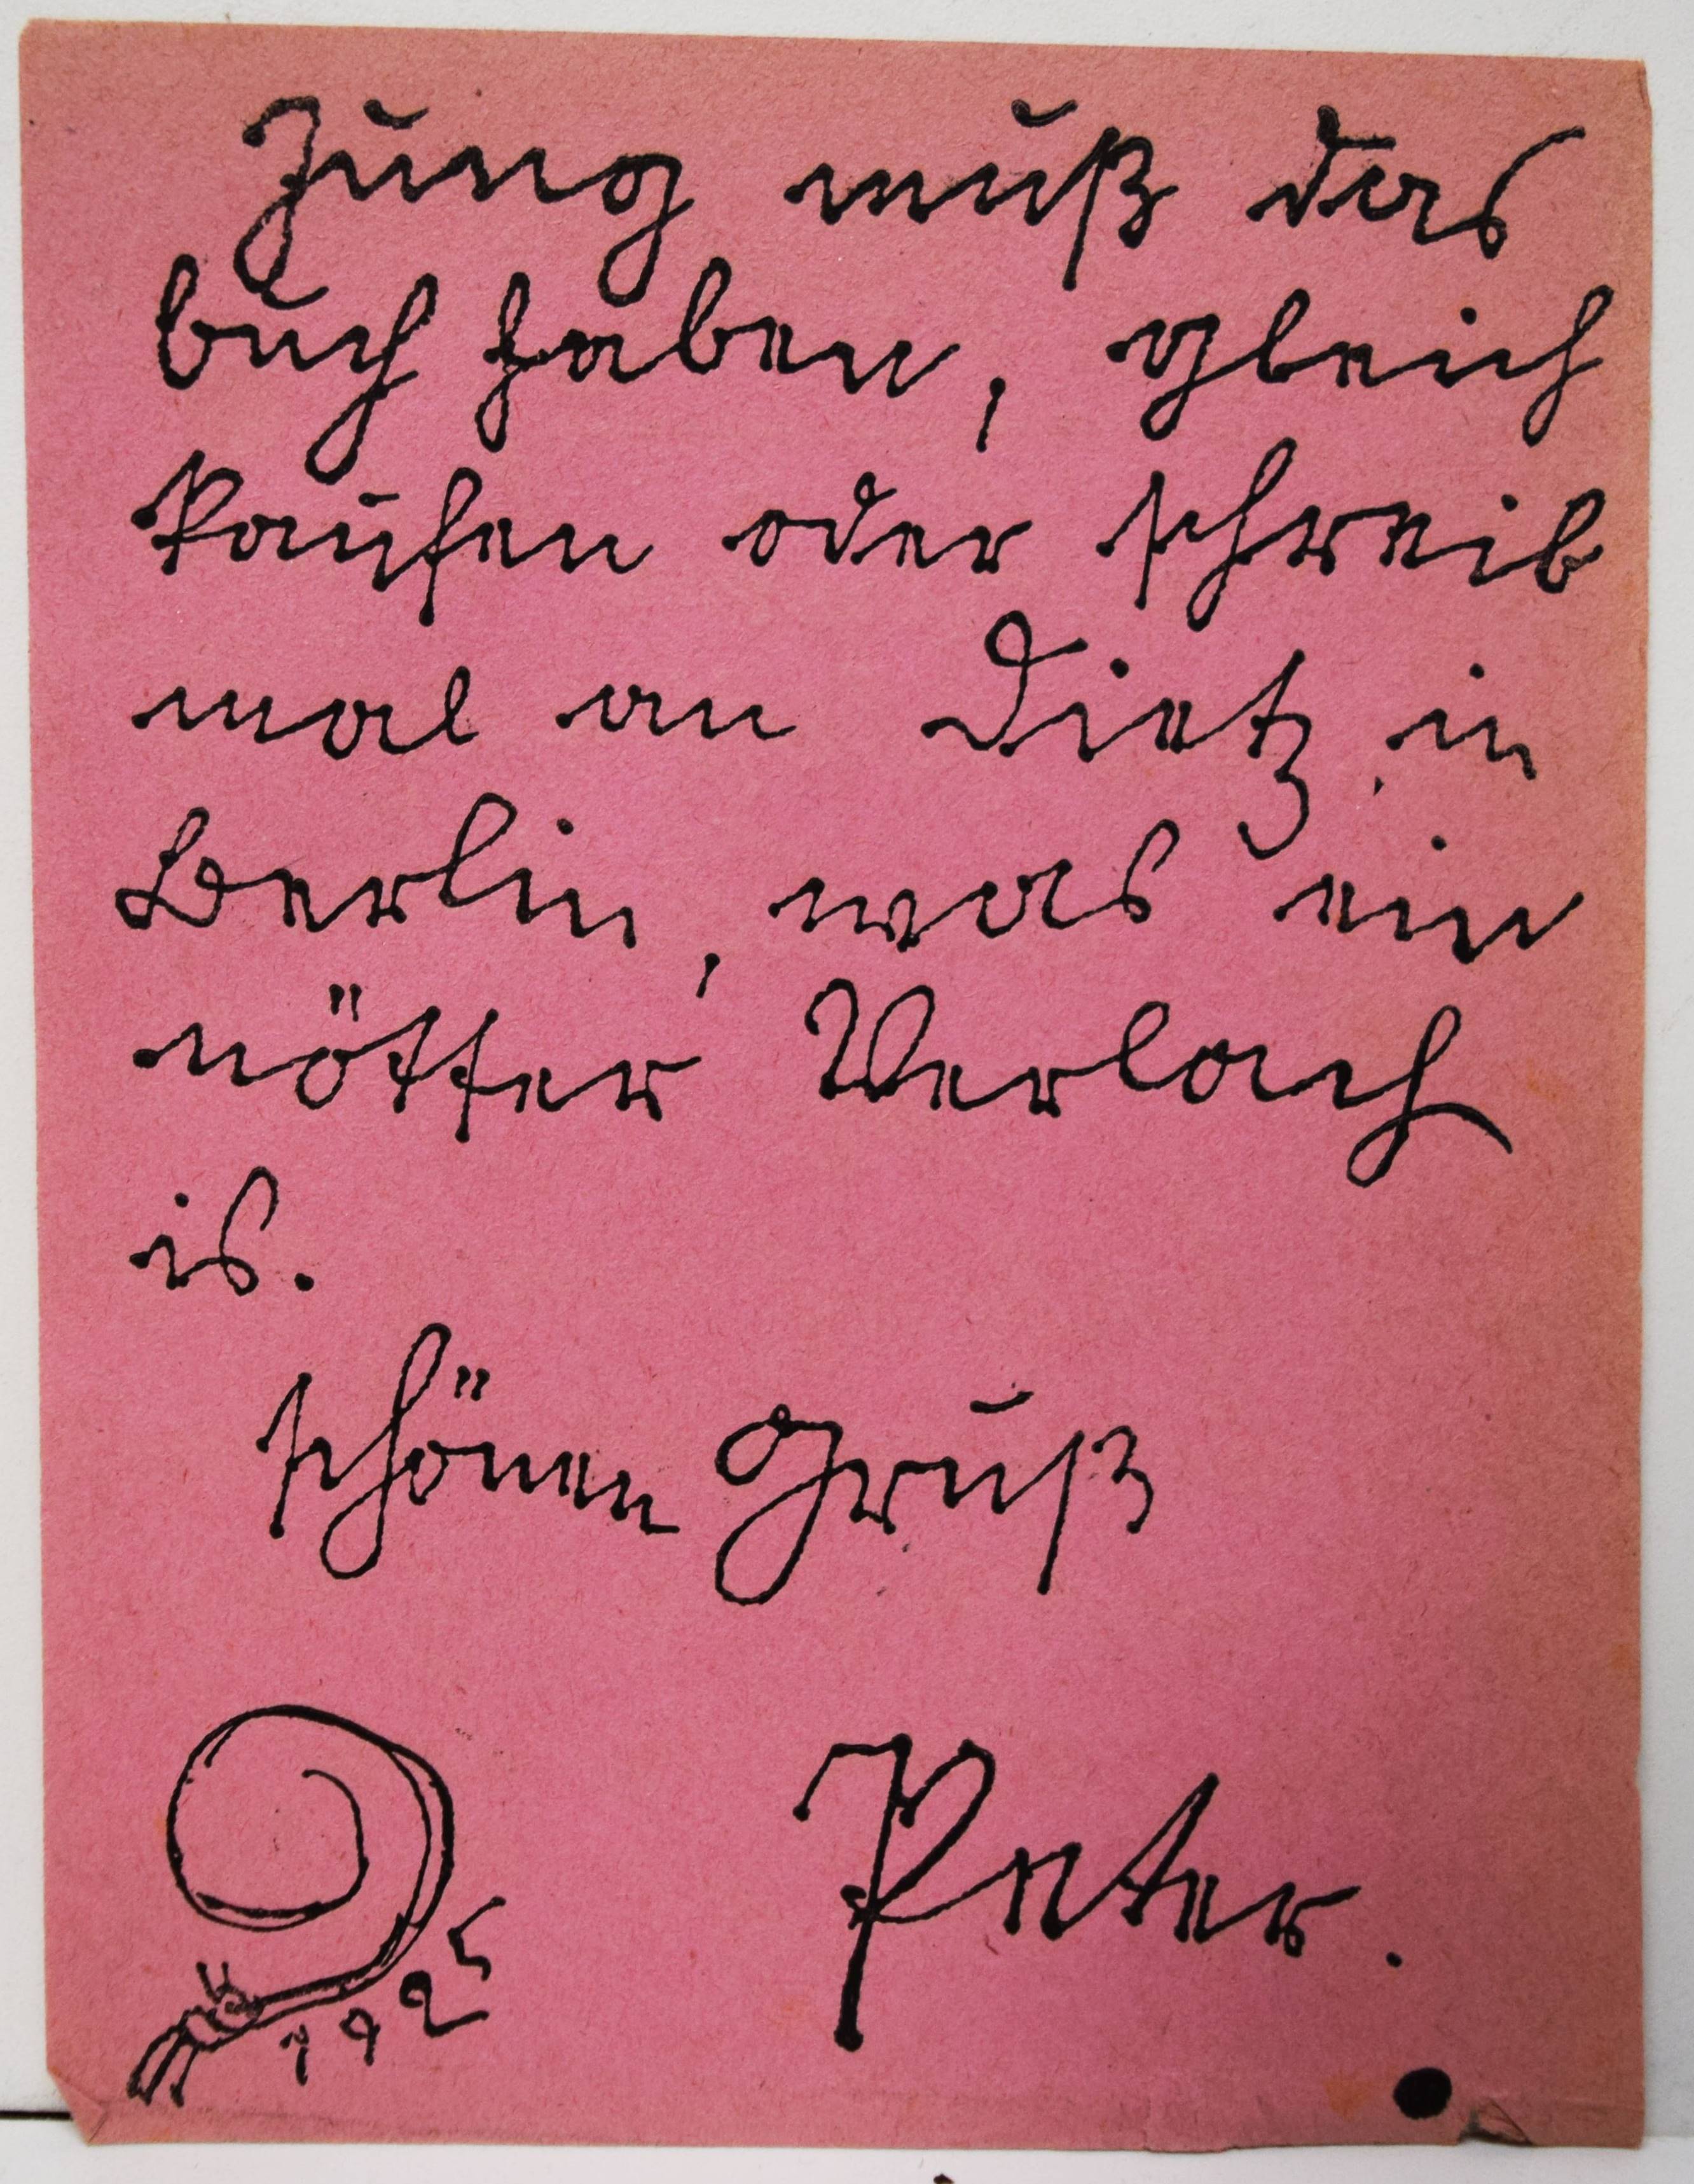 Jung muß das
buch haben, gleich
kaufen oder schreib
mal an Dietz, in
Berlin, was ein
nötter Verlach
is.
schönen Gruß
Peter.
1925